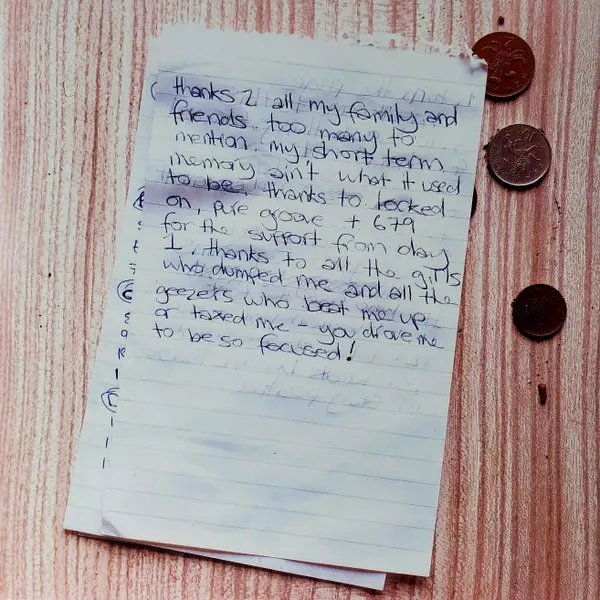 thanks 2 all my family and
friends too many to
mention my short term
memory ain't what it used
to be thanks to locked
on, pure groove + 679
for the support from day
1. thanks to all the girls
who dumped me and all the
geezers who beat me up
or taxed me - you drove me
to be so focused!